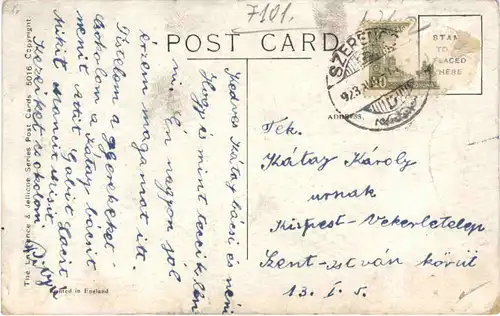 7101.
POST CARD
STAMP
TO
PLACED
HERE
SZERENCS
ADDRESS.
The Lawrence & Jellicoe Series Post Cards. 5016 Copyright
Printed in England
Kedves Kátay bácsi és néni
Hogy és mint tetszik len-
ni. Én nagyon jól
érzem magamat itt.
Tisztelem a gyerekeket.
Csókolom a Katay basit
nenit Adit Gabit Lacit
Mikit Mancit Misit.
Szeretet csokolom.
Tek.
Kátay Károly
urnak
Kispest-Wekerletelep
Szent-István körút
13. I. 5.